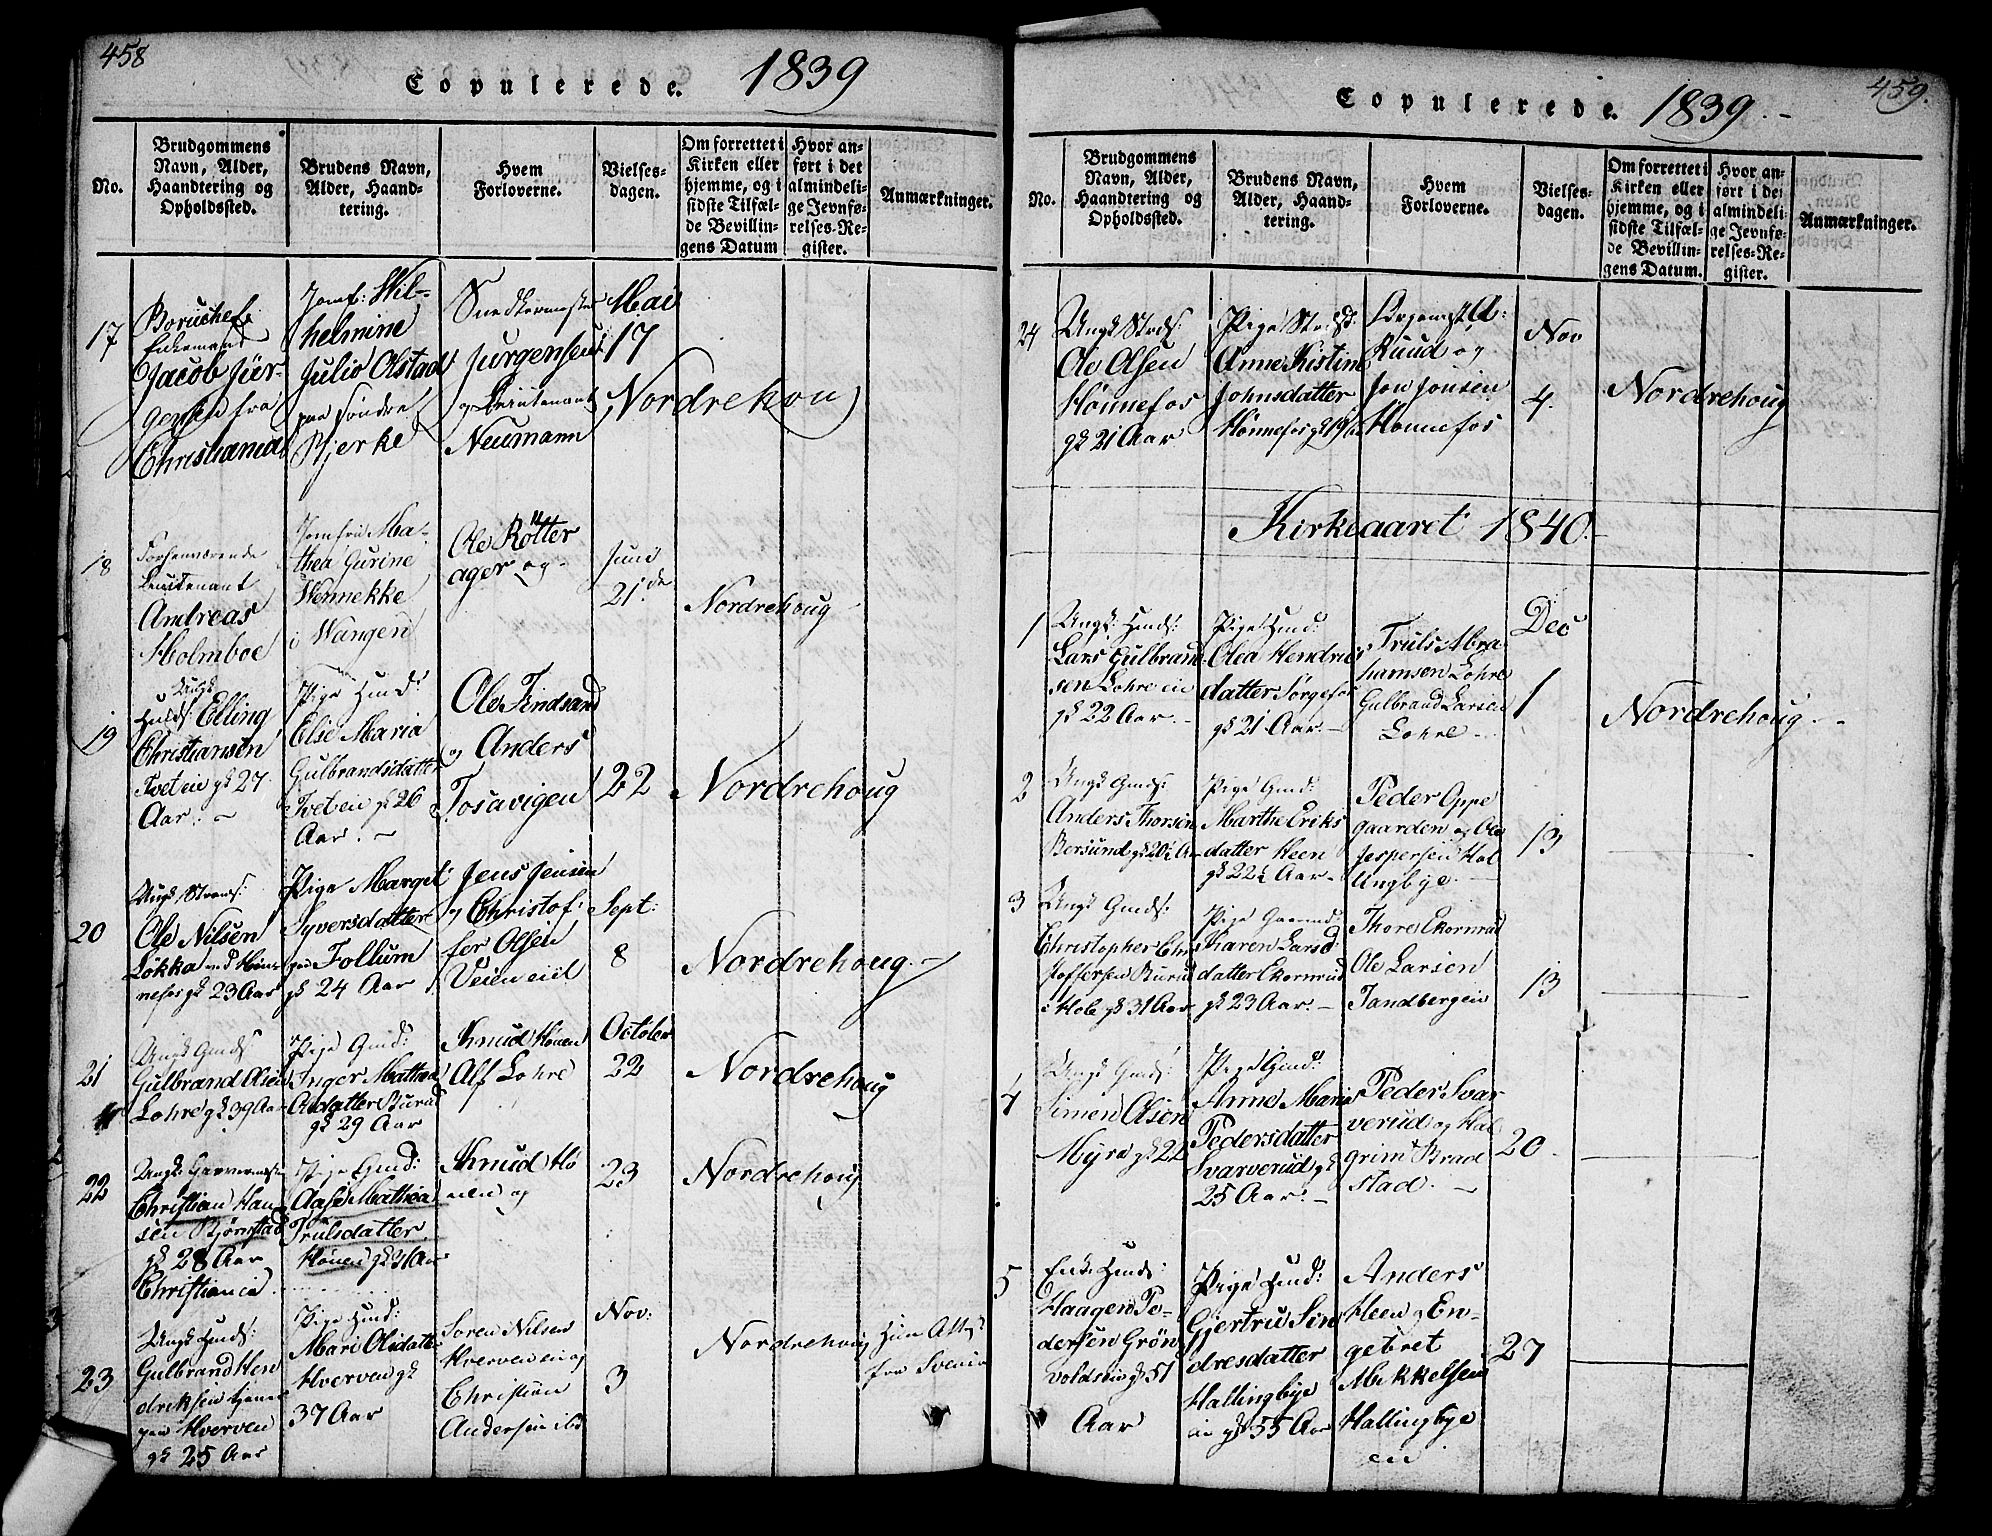 458
Copulerede. 1839
No.
Brudgommens
Navn, Alder,
Haandtering og
Opholdssted.
Brudens Navn,
Alder, Haand-
tering.
Hvem
Forloverne.
Vielses-
dagen.
Om forrettet i
Kirken eller
hjemme, og i
sidste Tilfæl-
de Bevillin-
gens Datum
Hvor an-
ført i det
almindeli-
ge Jevnfø-
relses-Re-
gister.
Anmærkninger.
17
Enkemand
Jacob Jür-
gensen fra
Christiania
Jomf: Wil-
helmine
Julie Olstad
paa Søndre
Bjerke
Snedkermester
Jurgensen
og Leiutenant
Neumann
Mai
17
Nordrehoug
18
Forhenværende
Leuitenant
Andreas
Holmboe
Jomfru Ma-
thea Gurine
Wennekke
i Wangen
Ole Rötter
ager og
Juni
21de
Nordrehoug
19
Ungk
Huusm: Elling
Christiansen
Tveteie gl 27
Aar. -
Pige Huusd:
Else Maria
Gulbrandsdatter
Tveteie gl 26
Aar. -
Ole Findsand
og Anders
Tosavigen
22
Nordrehoug
20
Ungk Strands:
Ole Nilsen
Løkka ved Høn-
nefos gl 23 Aar
Pige Marget
Syversdatter
paa Follum
gl 24 Aar
Jens Jensen
og Christof-
fer Olsen
Veien eie
Sept:
8
Nordrehoug. -
21
Ungk Gmds:
Gulbrand Olsen
Lohre gl 39 Aar
Pige Gmd:
Inger Mathea
Olsdatter Burud
gl 29 Aar
Knud Hønen
Alf Lohre
October
22
Nordrehoug
22
Ungk: Garvermester
Christian Han-
sen Bjørnstad
gl 28 Aar
Christiania
Pige Gmd:
Aase Mathea
Trulsdatter
Hønen gl 31 Aar
Knud Hø
nen og
23
Nordrehoug
23
Ungk Huusds:
Gulbrand Hen
driksen tjener
paa Hverven
gl 25 Aar
Pige Huusd:
Mari Olsdatter
Hverven gl
37 Aar
Søren Nilsen
Hverven eie og
Christian
Andersen ibd
Nov:
3
Nordrehoug
Hun Attest
fra
459.
Copulerede. 1839. -
No.
Brudgommens
Navn, Alder,
Haandtering og
Opholdssted.
Brudens Navn,
Alder, Haand-
tering.
Hvem
Forloverne.
Vielses-
dagen.
Om forrettet i
Kirken eller
hjemme, og i
sidste Tilfæl-
de Bevillin-
gens Datum.
Hvor an-
ført i det
almindeli-
ge Jevnfø-
relses-Re-
gister.
Anmærkninger.
24
Ungk Strds:
Ole Olsen
Hønnefos
gl 21 Aar
Pige Strdsd:
Anne Kistine
Johnsdatter
Hønnefos gl 19
Ruud og
Jon Jonsen
Hønnefos
Nov
4.
Nordrehoug
Kirkeaaret 1840. -
1
Ungk: Huusds:
Lars Gulbrand
sen Lohre eie
gl 22 Aar. -
Pige Huusd:
Olea Hendriks
datter Sørgefos
gl 21 Aar. -
Truls Abra
hamsen Lohre
Gulbrand Larsen
Lohre -
Dec
1
Nordrehoug. -
2
Ungk Gmds:
Anders Thorsen
Bersund gl 20½ Aar
Pige Gmd:
Marthe Eriks
datter Heen
gl 22½ Aar. -
Peder Oppe
gaarden og Ole
Jespersen Hal
lingbye. -
13
3
Ungk Gmds:
Christopher Chri
stoffersen Rurud
i Hole gl 31 Aar
Pige Gaardmd:
Karen Lars
datter Ekornrud
gl 23 Aar. -
Thore Ekornrud
Ole Larsen
Tandbergeie
13
4
Ungk Gmds:
Simen Olsen
Myra gl 22
Pige Gmd:
Anne Maria
Pedersdatter
Svarverud gl
25 Aar. -
Peder Svar
verud og Hal
grim Brad
stad. -
20
5
Enk: Huusds:
Haagen Pe-
dersen Grøn
voldseie gl 51
Aar
Pige Huusd:
Gjertru Sin
dresdatter
Hallingbye
eie gl 55 Aar
Anders
Heen og En-
gebret
Mikkelsen
Hallingbye
eie
27